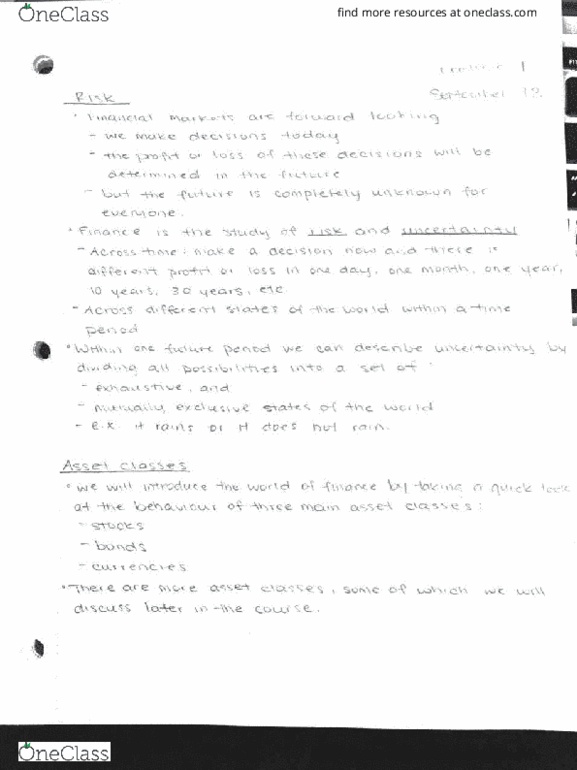 OneClass
find more resources at oneclass.com
Lecture 1
September 12
Risk
• Financial markets are forward looking
- we make decisions today
- the profit or loss of these decisions will be
determined in the future
- but the future is completely unknown for
everyone.
• Finance is the study of risk and uncertainty
- Across time: make a decision now and there is
different profit or loss in one day, one month, one year,
10 years, 30 years, etc.
- Across different states of the world within a time
period
• Within one future period we can describe uncertainty by
dividing all possibilities into a set of:
- exhaustive, and
- mutually exclusive states of the world
- e.x. it rains or it does not rain.
Asset classes
• we will introduce the world of finance by taking a quick look
at the behaviour of three main asset classes:
- stocks
- bonds
- currencies
• There are more asset classes, some of which we will
discuss later in the course.
OneClass